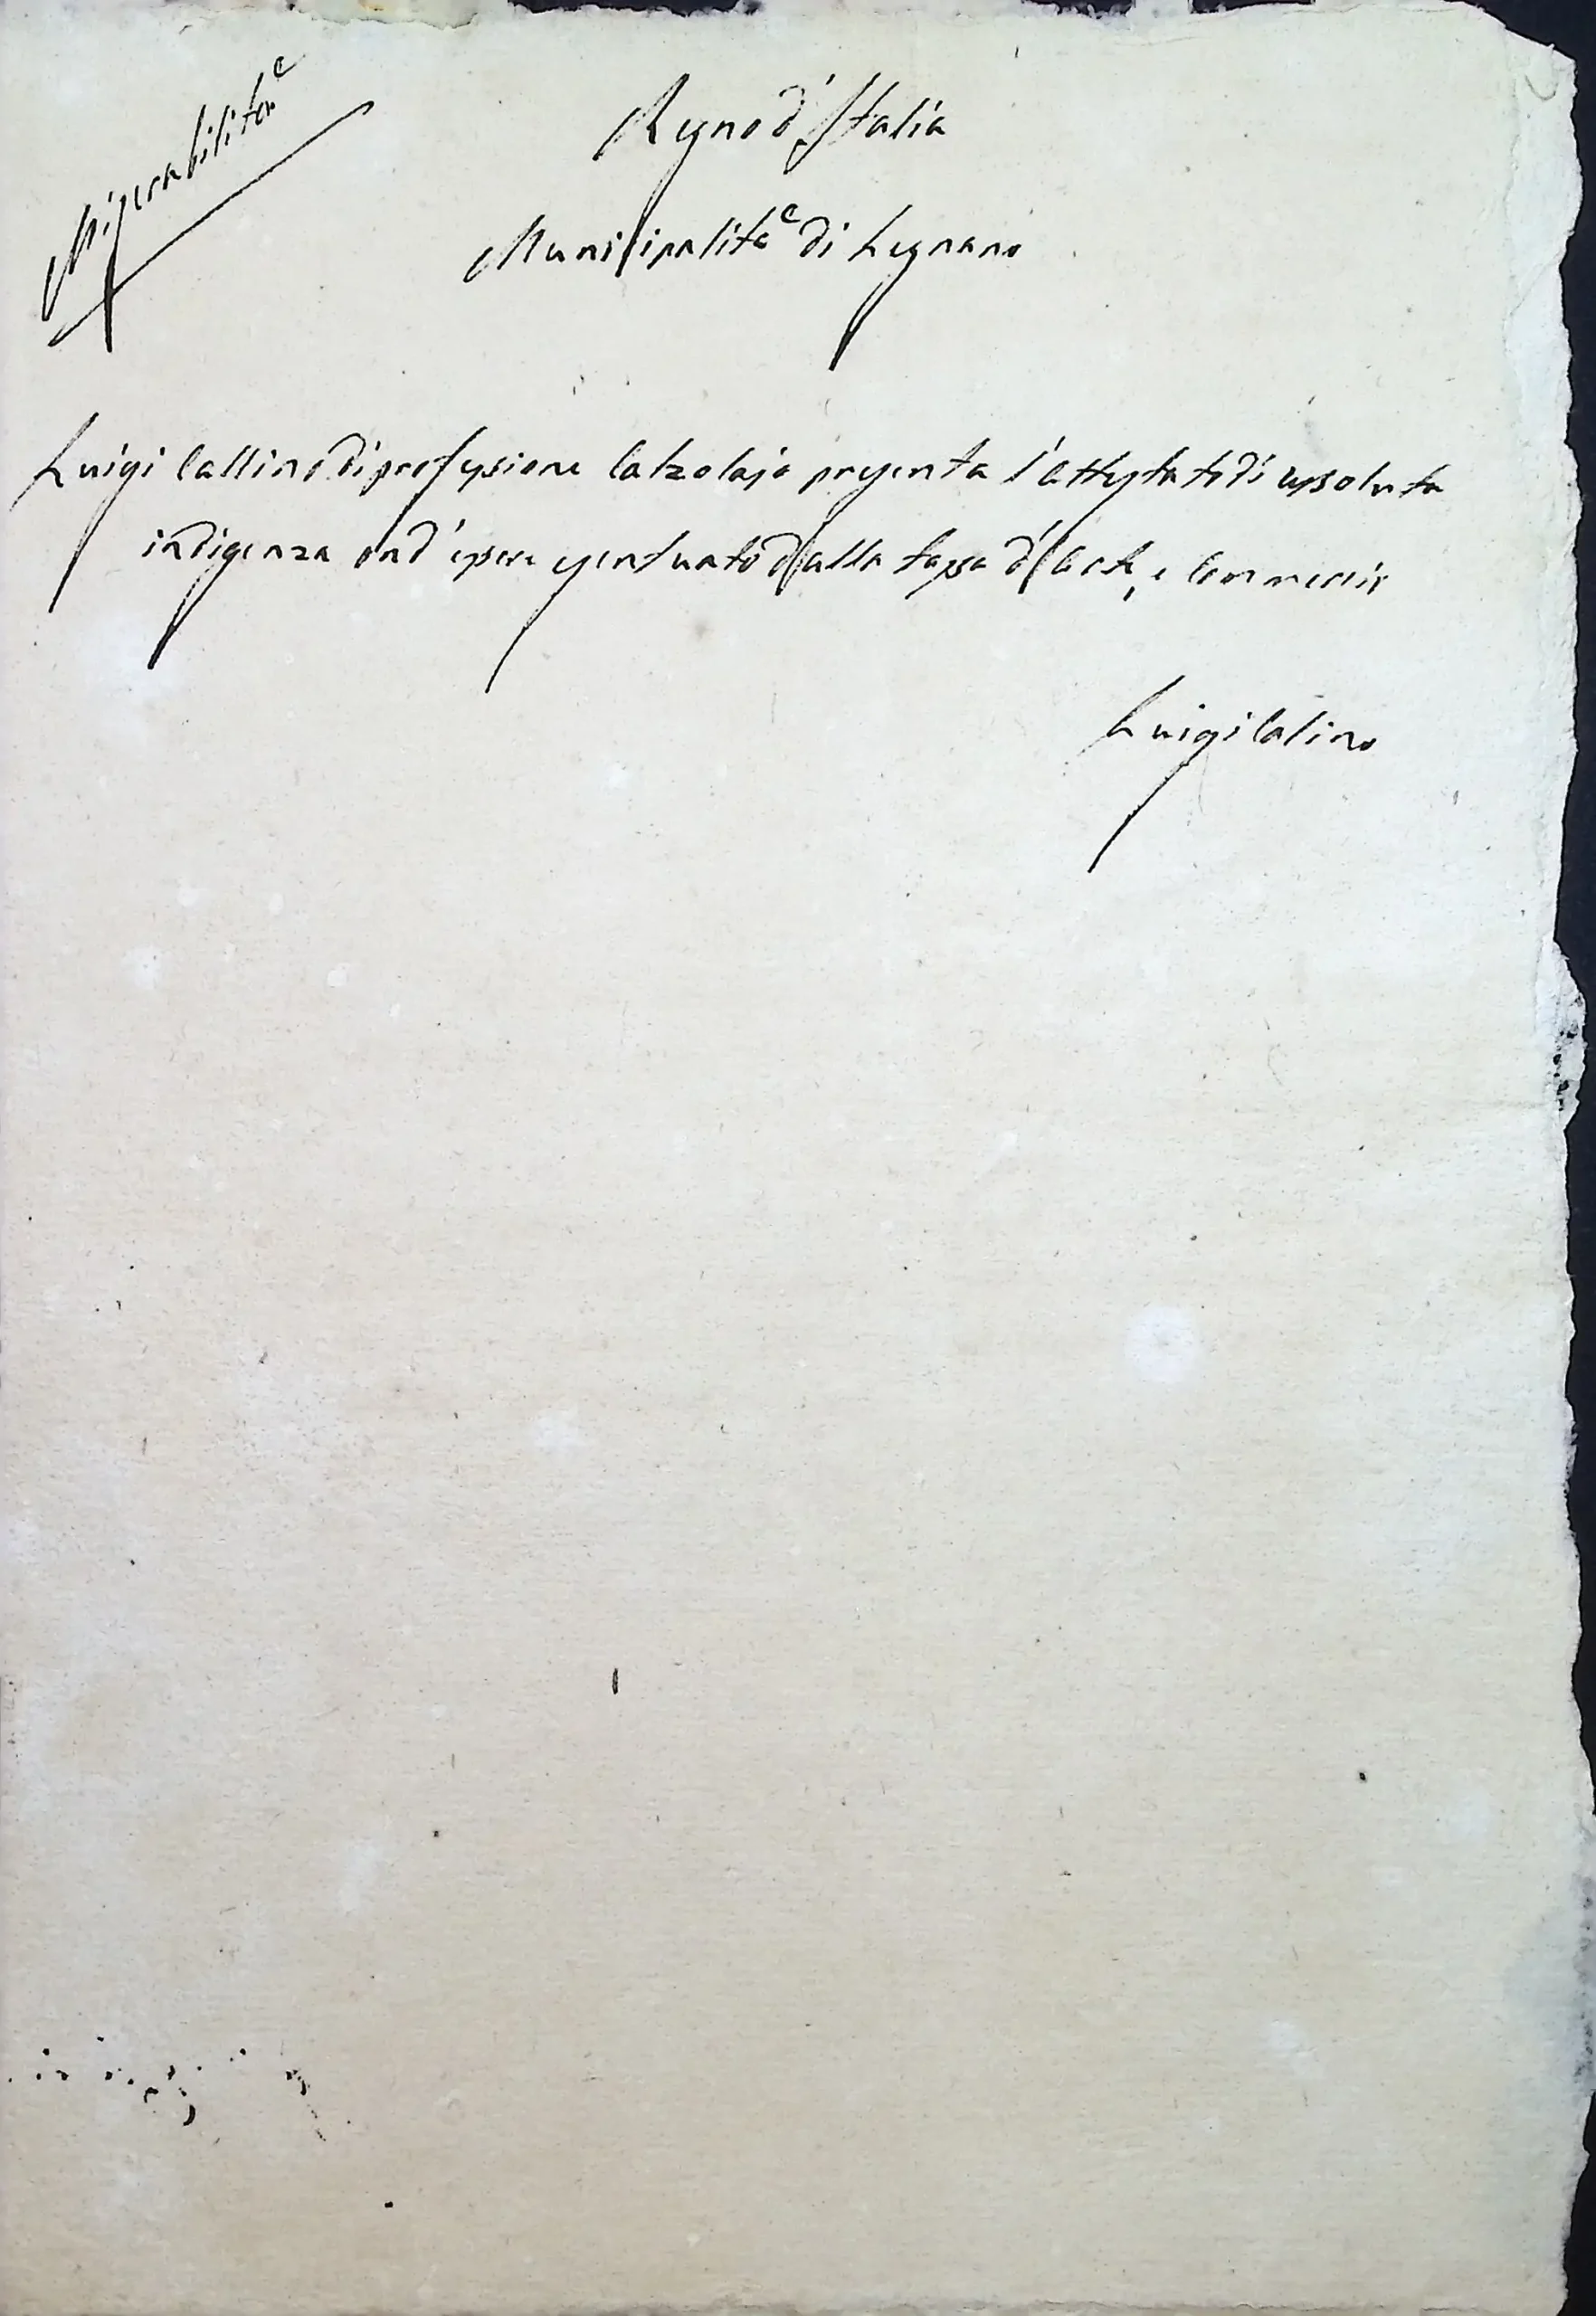 Miserabilità
Regno d'Italia
Municipalità di Legnano
Luigi Callino di professione Calzolajo presenta l'attestato di assoluta
indigenza ond'essere esentuato dalla tassa d'Arti, e Commercio
Luigi Calino